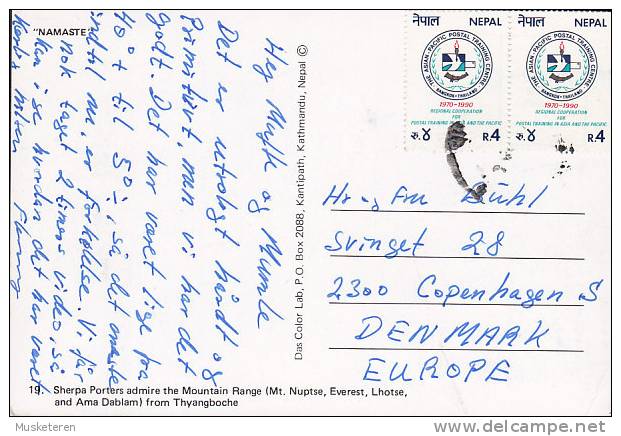 "NAMASTE"
Hej Mujk og Mumle
Det er utroligt hårdt og
Primitivt, men vi har det
godt. Det har været lige fra
40°+ til 5°÷, så det meste
indtil nu, er forkølede. Vi får
nok taget 2 timers video, så
kan i se hvordan det har været
Flemming
Das Color Lab, P.O. Box 2088, Kantipath, Kathmandu, Nepal ©
नेपाल NEPAL
THE ASIAN-PACIFIC POSTAL TRAINING CENTRE
BANGKOK-THAILAND
1970-1990
REGIONAL COOPERATION
FOR
POSTAL TRAINING IN ASIA AND THE PACIFIC
रु. ४ R.4
नेपाल NEPAL
THE ASIAN-PACIFIC POSTAL TRAINING CENTRE
BANGKOK-THAILAND
1970-1990
REGIONAL COOPERATION
FOR
POSTAL TRAINING IN ASIA AND THE PACIFIC
रु. ४ R.4
Hr og Fru Bühl
Svinget 28
2300 Copenhagen S
DENMARK
EUROPE
19. Sherpa Porters admire the Mountain Range (Mt. Nuptse, Everest, Lhotse,
and Ama Dablam) from Thyangboche
Musketeren
delcampe.net